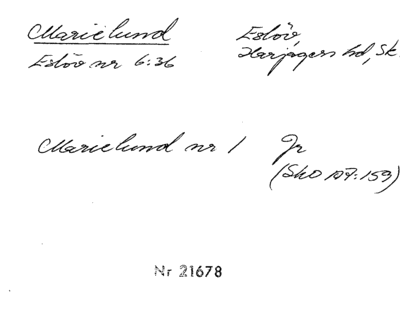 Marielund Eslöv,
Eslöv nr 6:36 Harjagers hd, Sk.
Marielund nr 1 Jr
(SkO 107:159)
Nr 21678